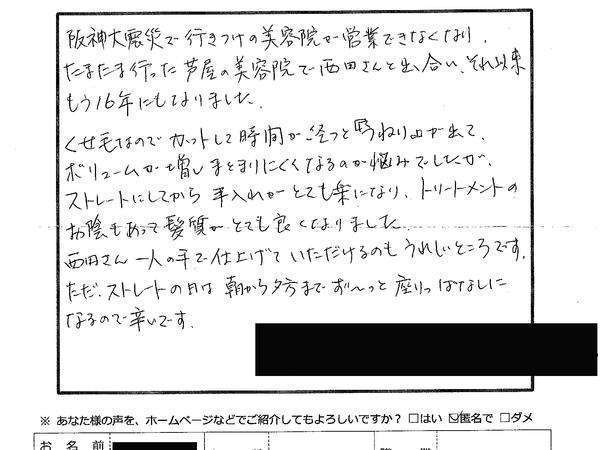 阪神大震災で行きつけの美容院が営業できなくなり、
たまたま行った芦屋の美容院で西田さんと出会い、それ以来
もう16年にもなりました。
くせ毛なのでカットして時間が経つと『うねり』が出て、
ボリュームが増しまとまりにくくなるのが悩みでしたが、
ストレートにしてから手入れがとても楽になり、トリートメントの
お陰もあって髪質がとても良くなりました。
西田さん一人の手で仕上げていただけるのもうれしいところです。
ただ、ストレートの日は朝から夕方までず～っと座りっぱなしに
なるので辛いです。
※ あなた様の声を、ホームページなどでご紹介してもよろしいですか？ □はい ☑匿名で □ダメ
お 名 前